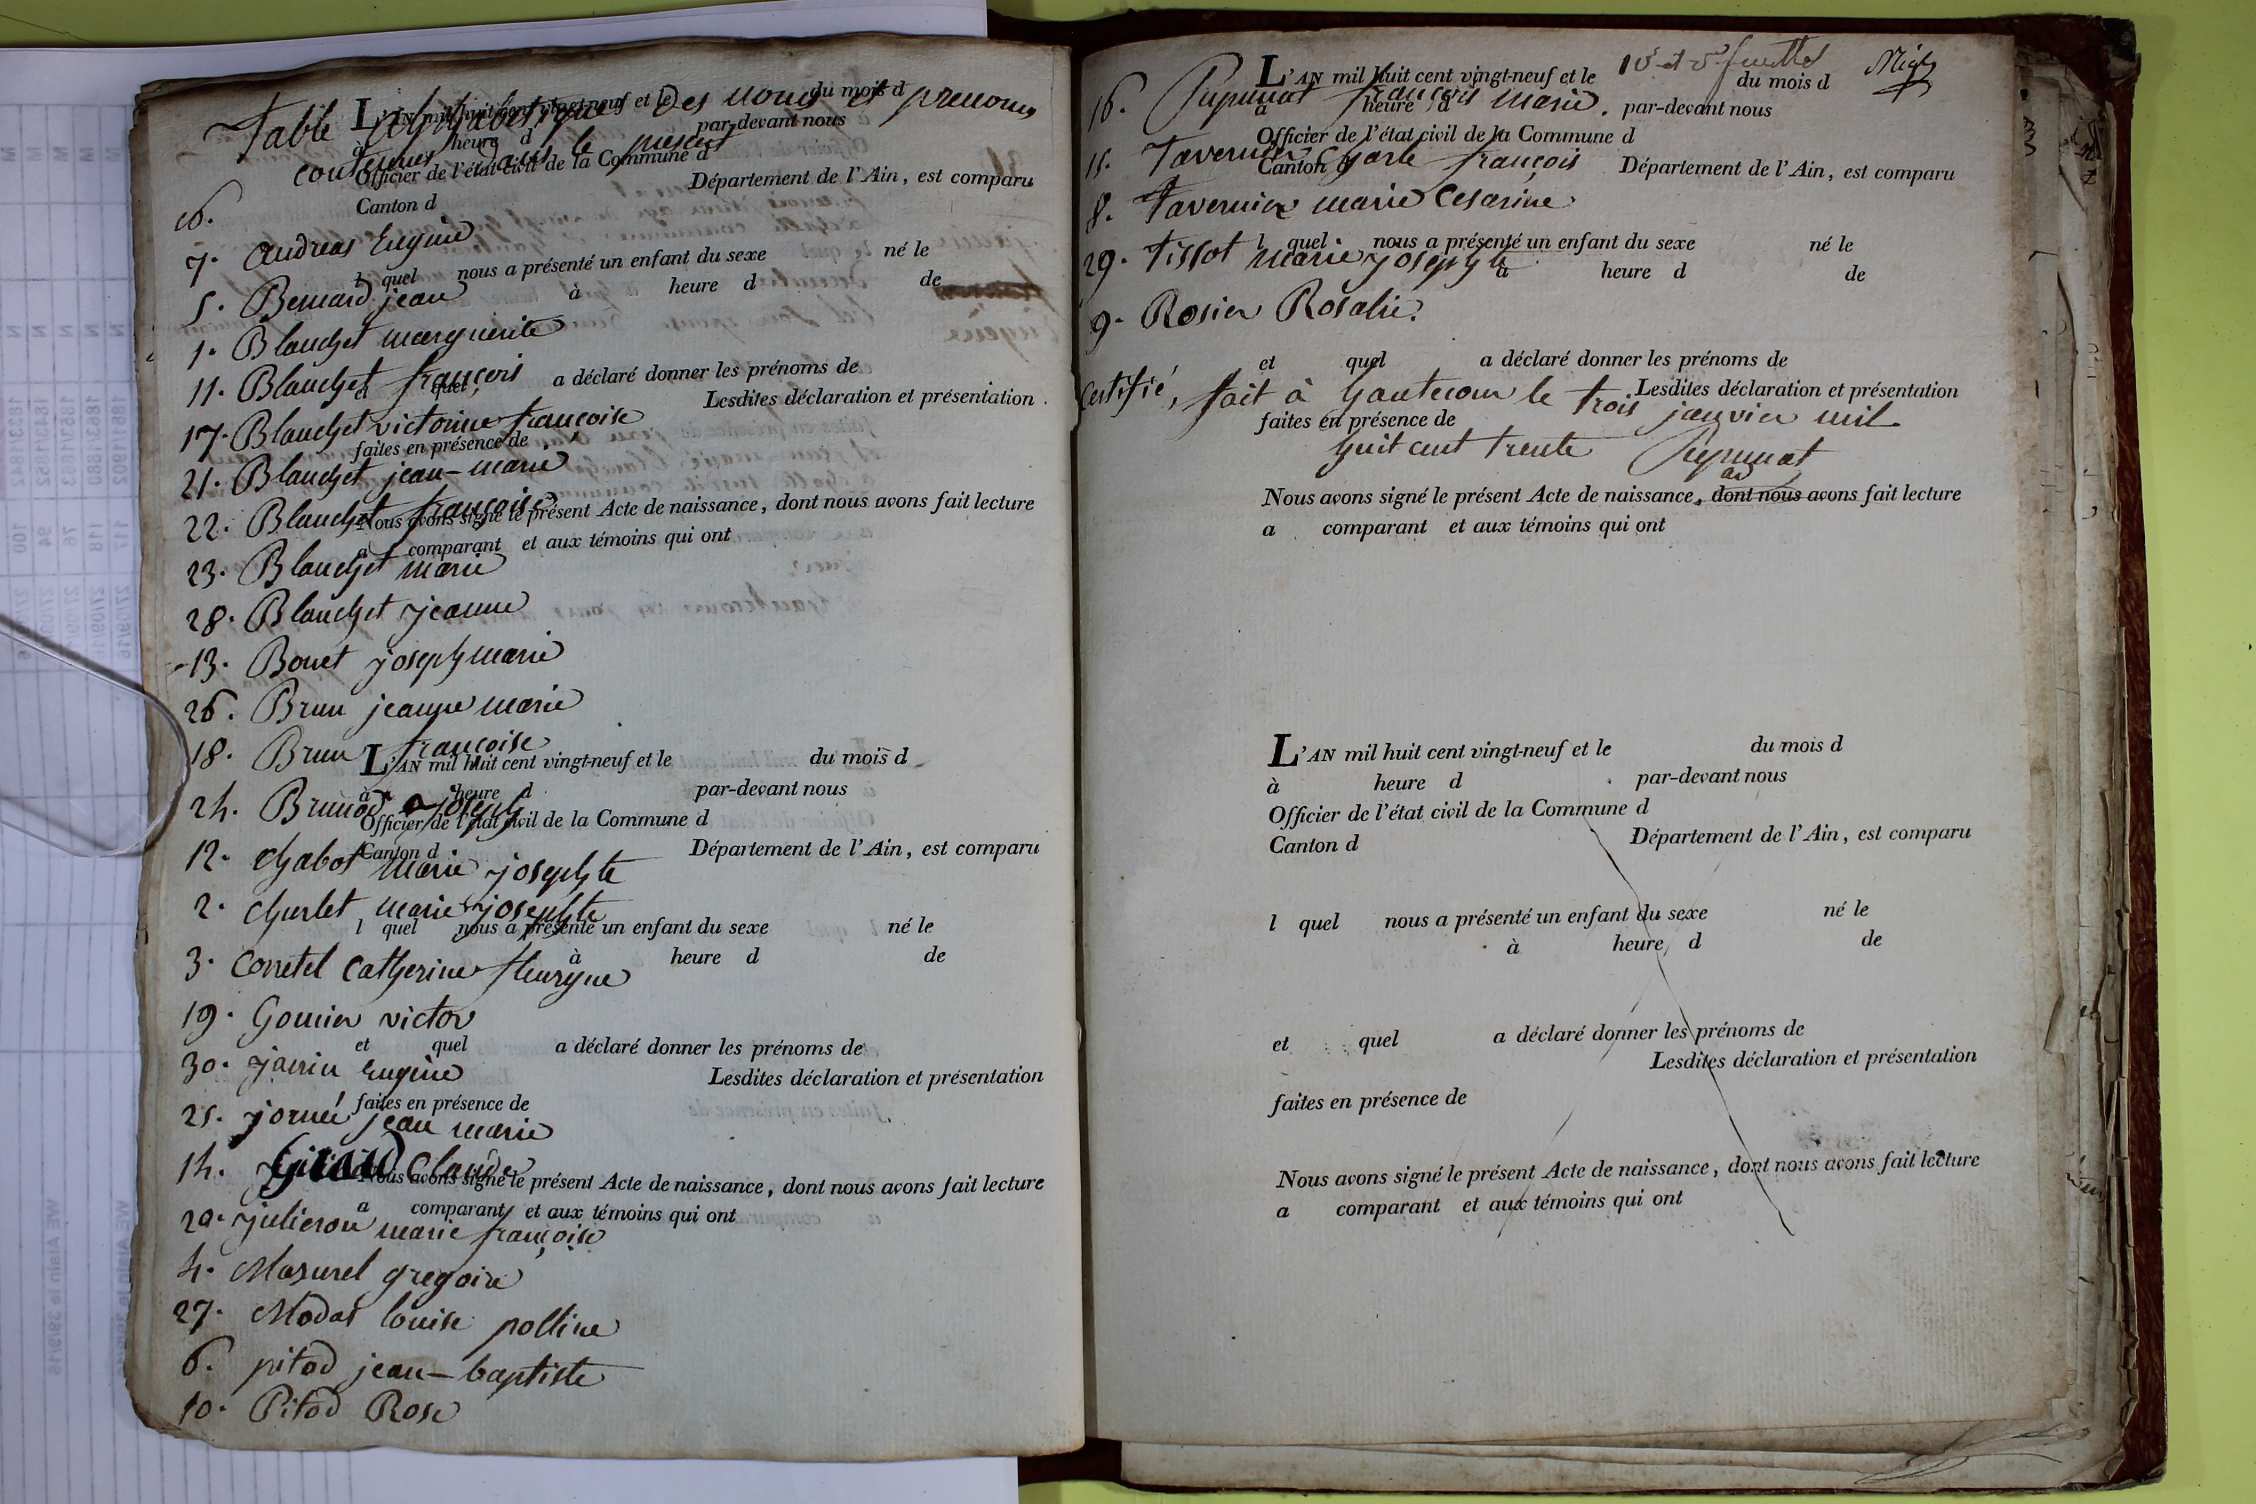 Table alphabetique des noms et prenoms
L'AN mil huit cent vingt-neuf et le du mois d
à heure d par-devant nous
contenus dans le present
Officier de l'état civil de la Commune d
Canton d Département de l'Ain, est comparu
7. andreas Eugine
l quel nous a présenté un enfant du sexe né le
à heure d de
5. Bernard jean
1. Blanchet marguerite
11. Blanchet françois
et quel a déclaré donner les prénoms de
Lesdites déclaration et présentation
17. Blanchet victorine françoise
faites en présence de
21. Blanchet jean-marie
22. Blanchet françoise
Nous avons signé le présent Acte de naissance, dont nous avons fait lecture
a comparant et aux témoins qui ont
23. Blanchet marie
28. Blanchet jeanne
13. Bonet joseph marie
26. Brun jeanne marie
18. Brun françoise
L'AN mil huit cent vingt-neuf et le du mois d
à heure d par-devant nous
24. Brunod joseph
Officier de l'état civil de la Commune d
Canton d Département de l'Ain, est comparu
12. chabot marie josephte
2. churlet marie josephte
l quel nous a présenté un enfant du sexe né le
à heure d de
3. Conetel Catherine fleuryne
19. Gonier victor
et quel a déclaré donner les prénoms de
30. janin Eugine
Lesdites déclaration et présentation
faites en présence de
25. jorné jean marie
14. Girard Claude
Nous avons signé le présent Acte de naissance, dont nous avons fait lecture
a comparant et aux témoins qui ont
20. julieron marie françoise
4. Masurel gregoire
27. Modas louise polline
6. pitod jean-baptiste
10. Pitod Rose
L'AN mil huit cent vingt-neuf et le du mois d
16. Pupunat françois marie.
à heure d par-devant nous
Officier de l'état civil de la Commune d
15. Tavernier Charle françois
Canton d Département de l'Ain, est comparu
8. Tavernier marie Cesarine
l quel nous a présenté un enfant du sexe né le
29. Tissot marie josephte
à heure d de
9. Rosier Rosalie.
et quel a déclaré donner les prénoms de
Lesdites déclaration et présentation
Certifié, fait à hautecour le trois janvier mil
faites en présence de
huit cent trente Pupunat
Nous avons signé le présent Acte de naissance, dont nous avons fait lecture
a comparant et aux témoins qui ont
L'AN mil huit cent vingt-neuf et le du mois d
à heure d par-devant nous
Officier de l'état civil de la Commune d
Canton d Département de l'Ain, est comparu
l quel nous a présenté un enfant du sexe né le
à heure d de
et quel a déclaré donner les prénoms de
Lesdites déclaration et présentation
faites en présence de
Nous avons signé le présent Acte de naissance, dont nous avons fait lecture
a comparant et aux témoins qui ont